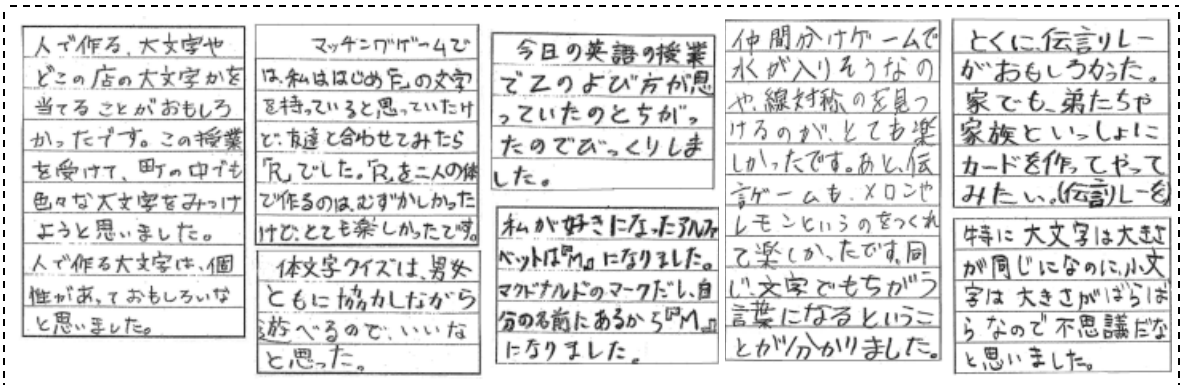 人で作る、大文字や
どこの店の大文字かを
当てることがおもしろ
かったです。この授業
を受けて、町の中でも
色々な大文字をみつけ
ようと思いました。
人で作る大文字は、個
性があっておもしろいな
と思いました。
マッチングゲームで
は、私ははじめ「E」の文字
を持っていると思っていたけ
ど、友達と合わせてみたら
「R」でした。「R」を二人の体
で作るのは、むずかしかった
けど、とても楽しかったです。
体文字クイズは、男女
ともに協力しながら
遊べるので、いいな
と思った。
今日の英語の授業
でZのよび方が思
っていたのとちがっ
たのでびっくりしま
した。
私が好きになったアルファ
ベットは『M』になりました。
マクドナルドのマークだし、自
分の名前にあるから『M』
になりました。
仲間分けゲームで
水が入りそうなの
や、線対称のを見つ
けるのが、とても楽
しかったです。あと、伝
言ゲームも、メロンや
レモンというのをつくれ
て楽しかったです。同
じ文字でもちがう
言葉になるというこ
とが分かりました。
とくに、伝言リレー
がおもしろかった。
家でも、弟たちや
家族といっしょに
カードを作ってやって
みたい。(伝言リレーを)
特に大文字は大きさ
が同じになのに、小文
字は大きさがばらば
らなので不思議だな
と思いました。